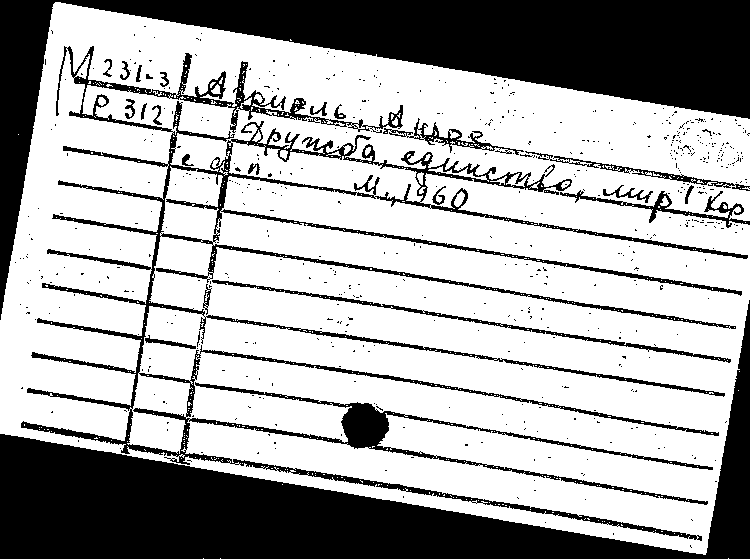 М 231-3
Р. 312
Агриель, Андре
Дружба, единство, мир! Хор
с ф.п. М., 1960